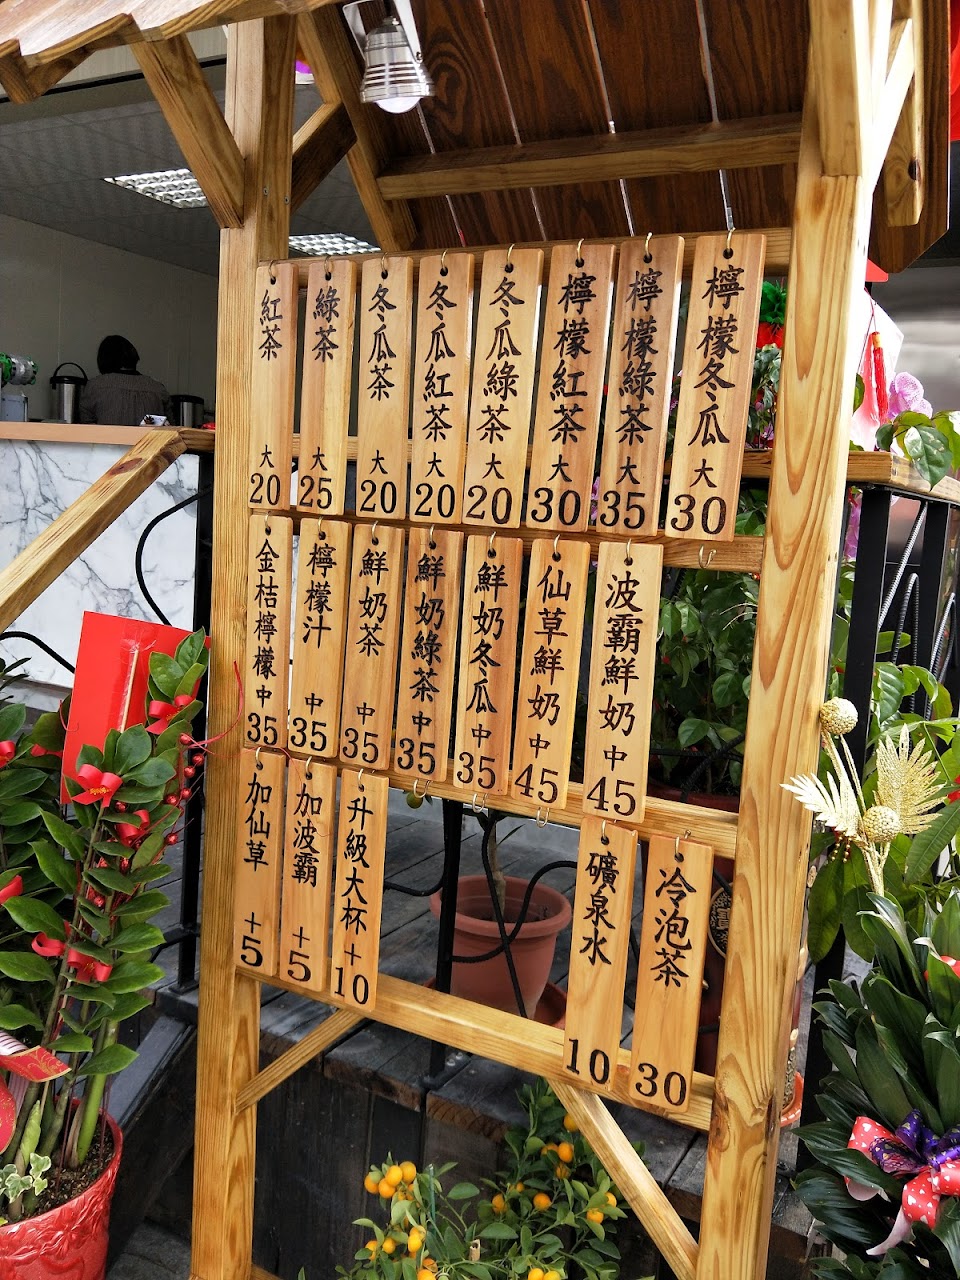 紅茶 大 20
綠茶 大 25
冬瓜茶 大 20
冬瓜紅茶 大 20
冬瓜綠茶 大 20
檸檬紅茶 大 30
檸檬綠茶 大 35
檸檬冬瓜 大 30
金桔檸檬 中 35
檸檬汁 中 35
鮮奶茶 中 35
鮮奶綠茶 中 35
鮮奶冬瓜 中 35
仙草鮮奶 中 45
波霸鮮奶 中 45
加仙草 +5
加波霸 +5
升級大杯 +10
礦泉水 10
冷泡茶 30